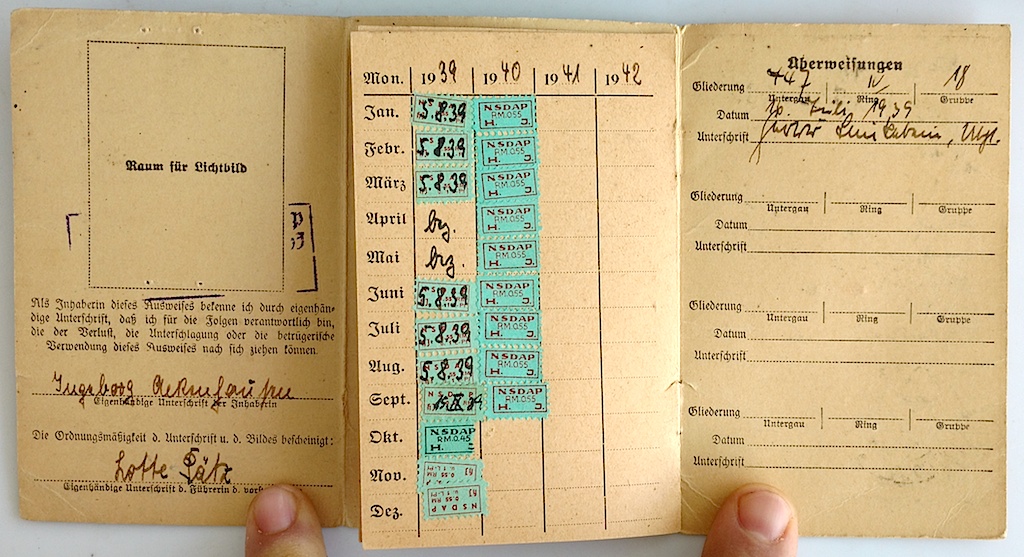 Raum für Lichtbild
Als Inhaberin dieses Ausweises bekenne ich durch eigenhän-
dige Unterschrift, daß ich für die Folgen verantwortlich bin,
die der Verlust, die Unterschlagung oder die betrügerische
Verwendung dieses Ausweises nach sich ziehen können.
Ingeborg
Eigenhändige Unterschrift der Inhaberin
Die Ordnungsmäßigkeit d. Unterschrift u. d. Bildes bescheinigt:
Lotte Pätz
Eigenhändige Unterschrift d. Führerin d.
Mon. 1939 1940 1941 1942
Jan. 5.8.39 NSDAP RM.0.55 H. J.
Febr. 5.8.39 NSDAP RM.0.55 H. J.
März 5.8.39 NSDAP RM.0.55 H. J.
April bez. NSDAP RM.0.55 H. J.
Mai bez. NSDAP RM.0.55 H. J.
Juni 5.8.39 NSDAP RM.0.55 H. J.
Juli 5.8.39 NSDAP RM.0.55 H. J.
Aug. 5.8.39 NSDAP RM.0.55 H. J.
Sept. NSDAP RM.0.55 H. J.
Okt. NSDAP RM.0.45 H.
Nov. 0.55 RM
Dez. NSDAP 0.55 RM
Überweisungen
Gliederung 447 IV 18
Untergau Ring Gruppe
Datum 10. Juli 1939
Unterschrift
Gliederung
Untergau Ring Gruppe
Datum
Unterschrift
Gliederung
Untergau Ring Gruppe
Datum
Unterschrift
Gliederung
Untergau Ring Gruppe
Datum
Unterschrift